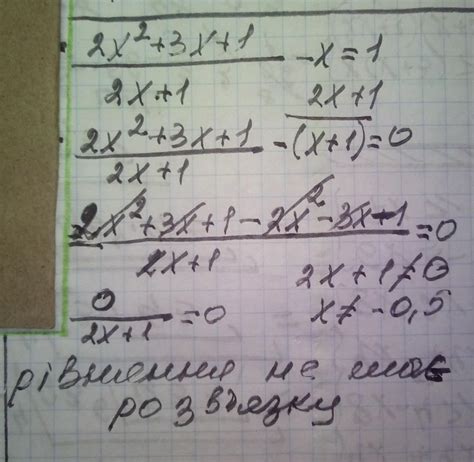 2x²+3x+1 / 2x+1 - x = 1
2x²+3x+1 / 2x+1 - (x+1) = 0 2x+1
2x²+3x+1-2x²-3x+1 / 2x+1 = 0
0 / 2x+1 = 0 2x+1≠0
x≠-0,5
рівняння не має
розвязку